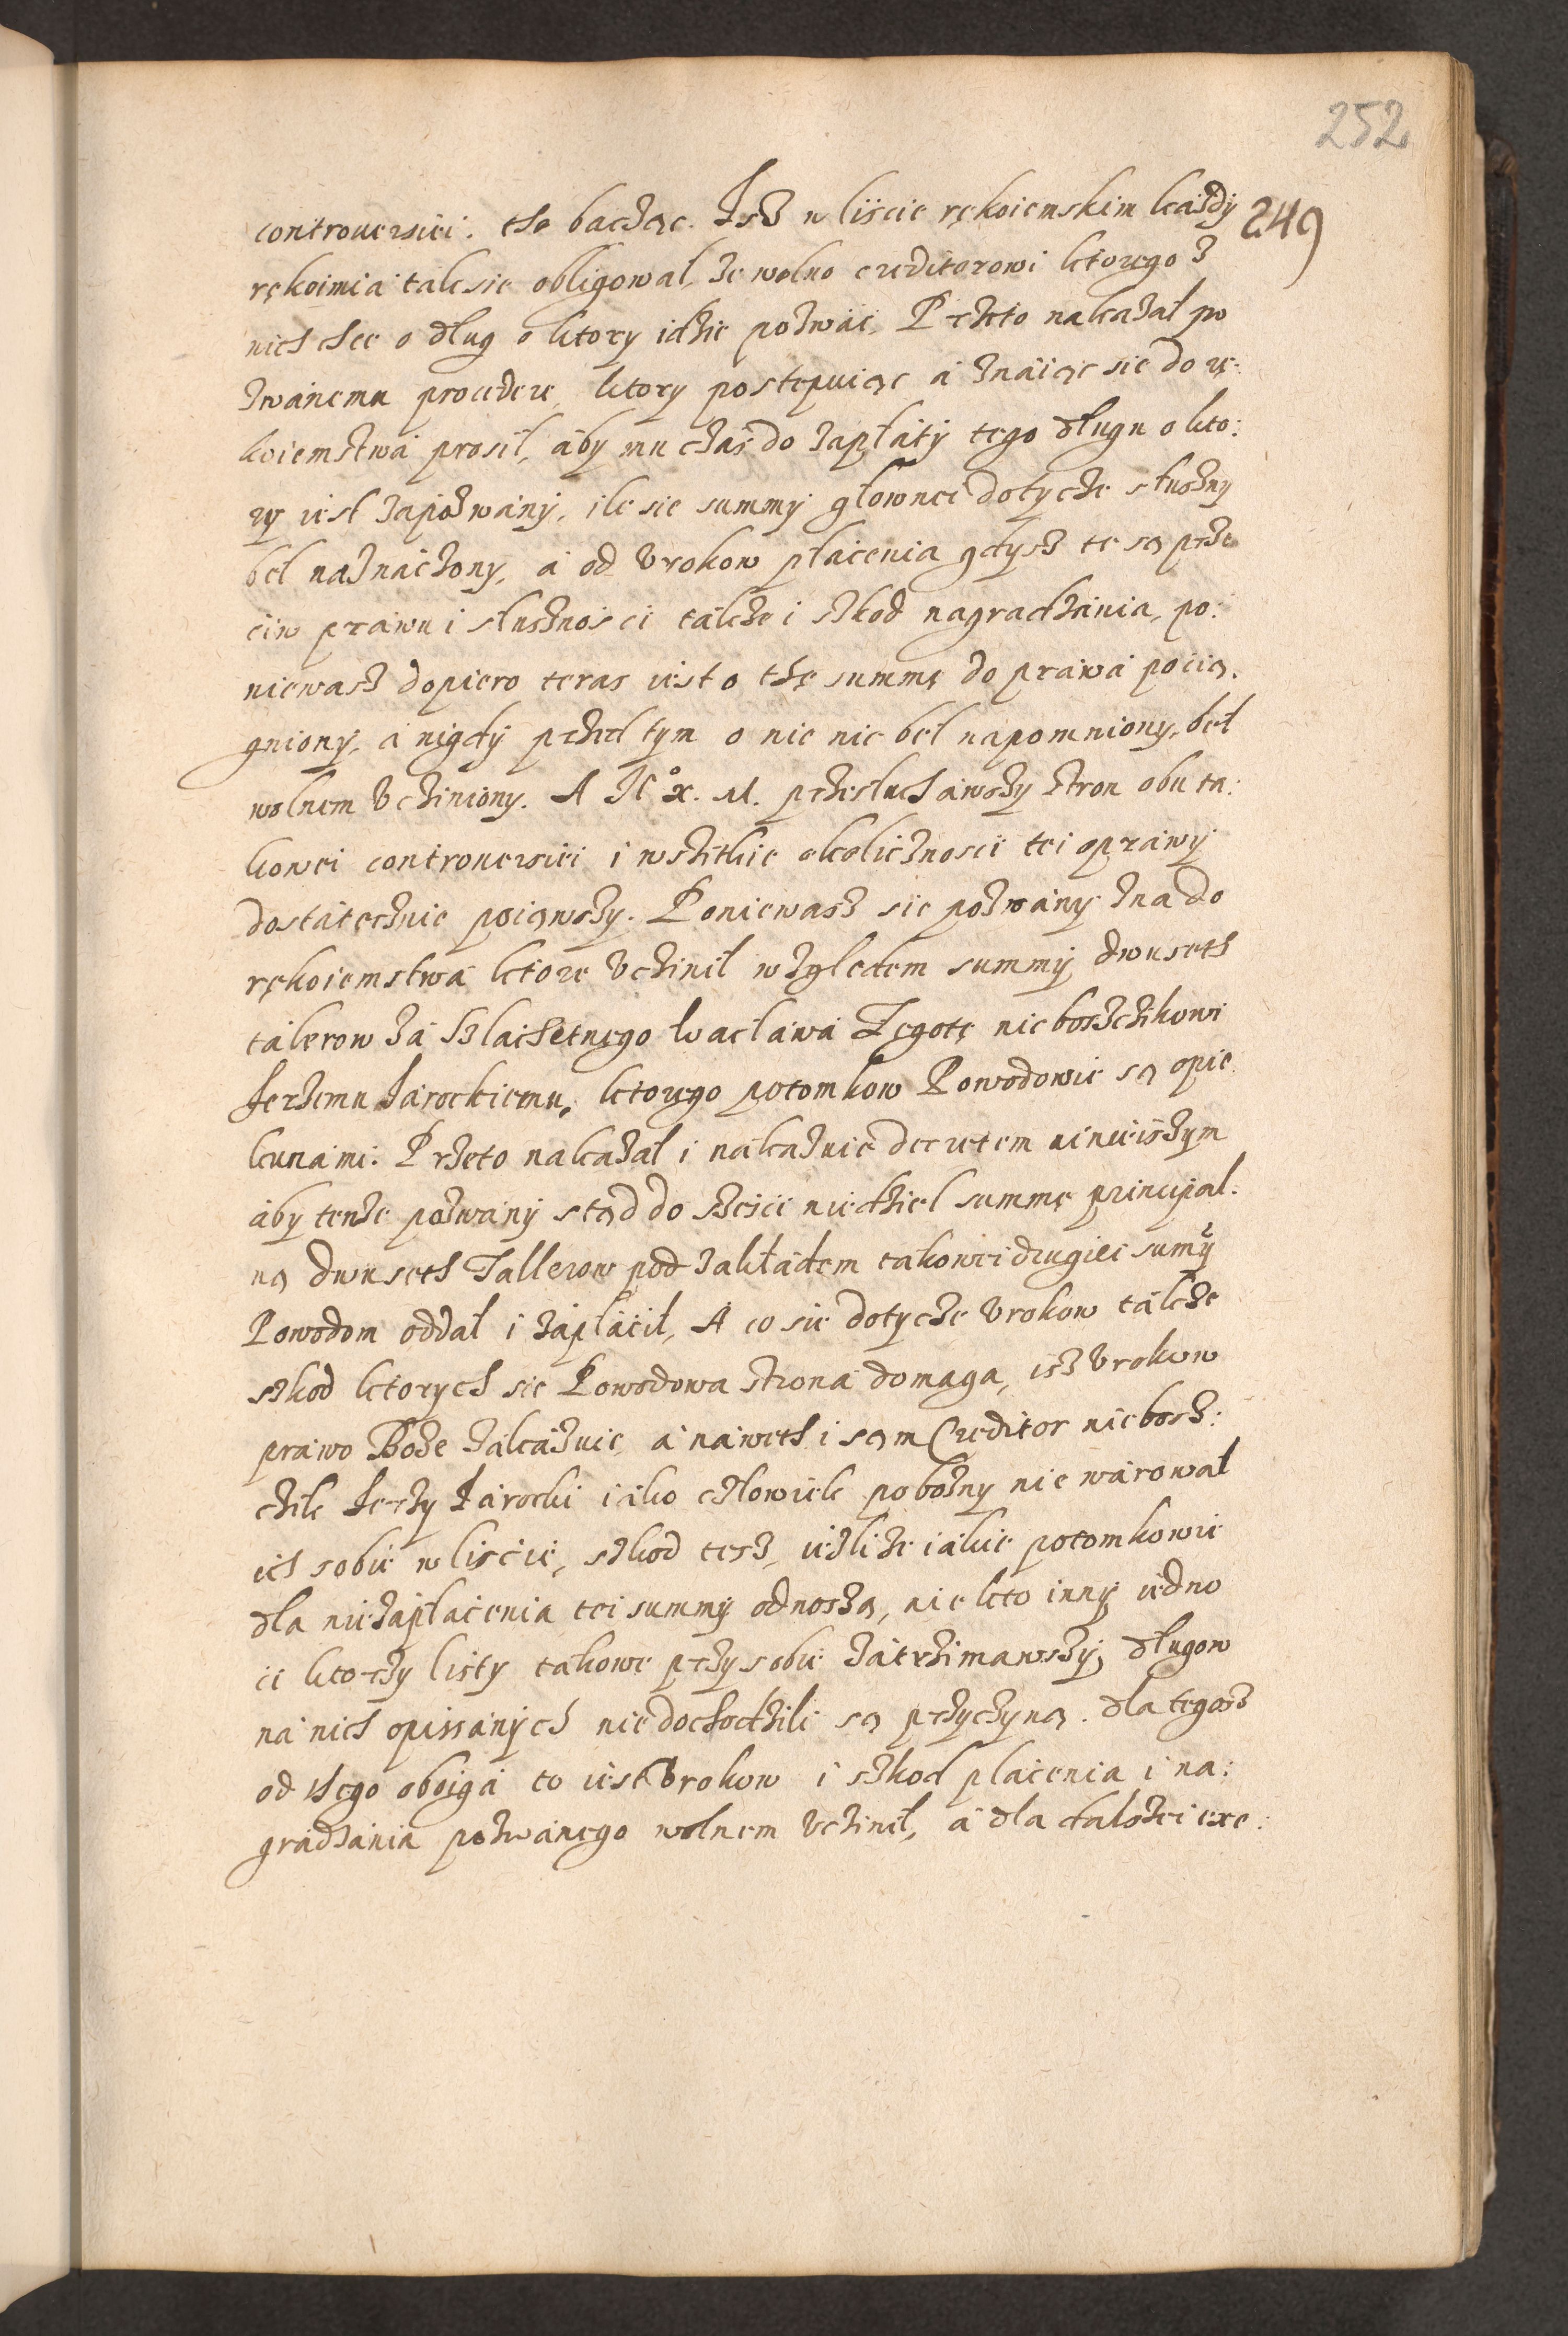 252
249
controuersiei. tho baczącz. Isz w liscie rękoiemskim każdy
rękoimia tak sie obligował, że wolno creditorowi ktorego z
nich chce o dług o ktory idzie pozwać. Przeto nakazał po
zwanemu procedere, ktory postępuiąc a znaiąc sie do rę:
koiemstwa prosił, aby mu czas do zapłaty tego długu o kto:
ry iest zapozwany, ile sie summy głownei dotycze słuszny
beł naznaczony, a od vrokow płacenia gdysz te są prze
ciw prawu i słusznosci także i szkod nagradzania, po:
niewasz dopiero teras iest o thę summę do prawa pocią.
gniony, a nigdy przed tym o nie nie beł napomniony, beł
wolnem vcziniony. A Kº x. M. przesłuchawszy stron obu ta:
kowei controuersiei i wszitkie okolicznosci tei sprawy
dostatecznie poiąwszy. Poniewasz sie pozwany zna do
rękoiemstwa ktore vczinił względem summy dwuseth
talerow za Szlachetnego Wacława Zegotę nieboszczikowi
Jerzemu Jarockiemu, ktorego potomkow Powodowie są opie
kunami. Przeto nakazał i nakazuie decretem ninieiszym
aby tenże pozwany stąd do szesci niedziel summę principal:
ną dwuseth Tallerow pod zakładem takowei drugiei sumy
Powodom oddał i zapłacił, A co sie dotycze vrokow także
szkod ktorych sie Powodowa strona domaga, isz vrokow
prawo Boże zakazuie, a naweth i sąm Creditor niebosz:
czik Jerzy Jarocki iako człowiek pobożny nie warował
ich sobie w liscie, szkod tesz, ieżliże iakie potomkowie
dla niezapłacenia tei summy odnoszą, nie kto inny iedno
ci ktorzy listy takowe przy sobie zatrzimawszy, długow
na nich opissanych nie dochodzili są przyczyną. dla tegosz
od thego oboiga to iest vrokow i szkod płacenia i na:
gradzania pozwanego wolnem vczinił, a dla dalszei exe: